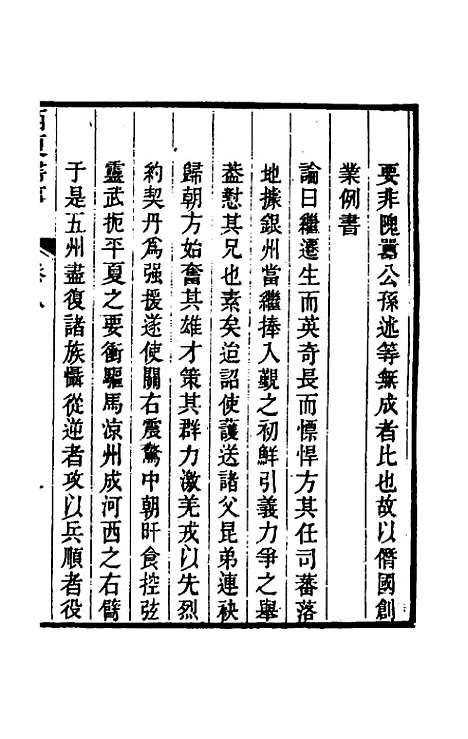 要非隗囂公孫述等無成者比也故以僭國創
業例書
論曰繼遷生而英奇長而慓悍方其任司蕃落
地據銀州當繼捧入覲之初鮮引義力爭之舉
葢懟其兄也素矣迨詔使護送諸父昆弟連袂
歸朝方始奮其雄才策其群力激羌戎以先烈
約契丹為强援遂使關右震驚中朝旰食控弦
靈武扼平夏之要衝驅馬凉州成河西之右臂
于是五州盡復諸族懾從逆者攻以兵順者役
西夏書事
卷八